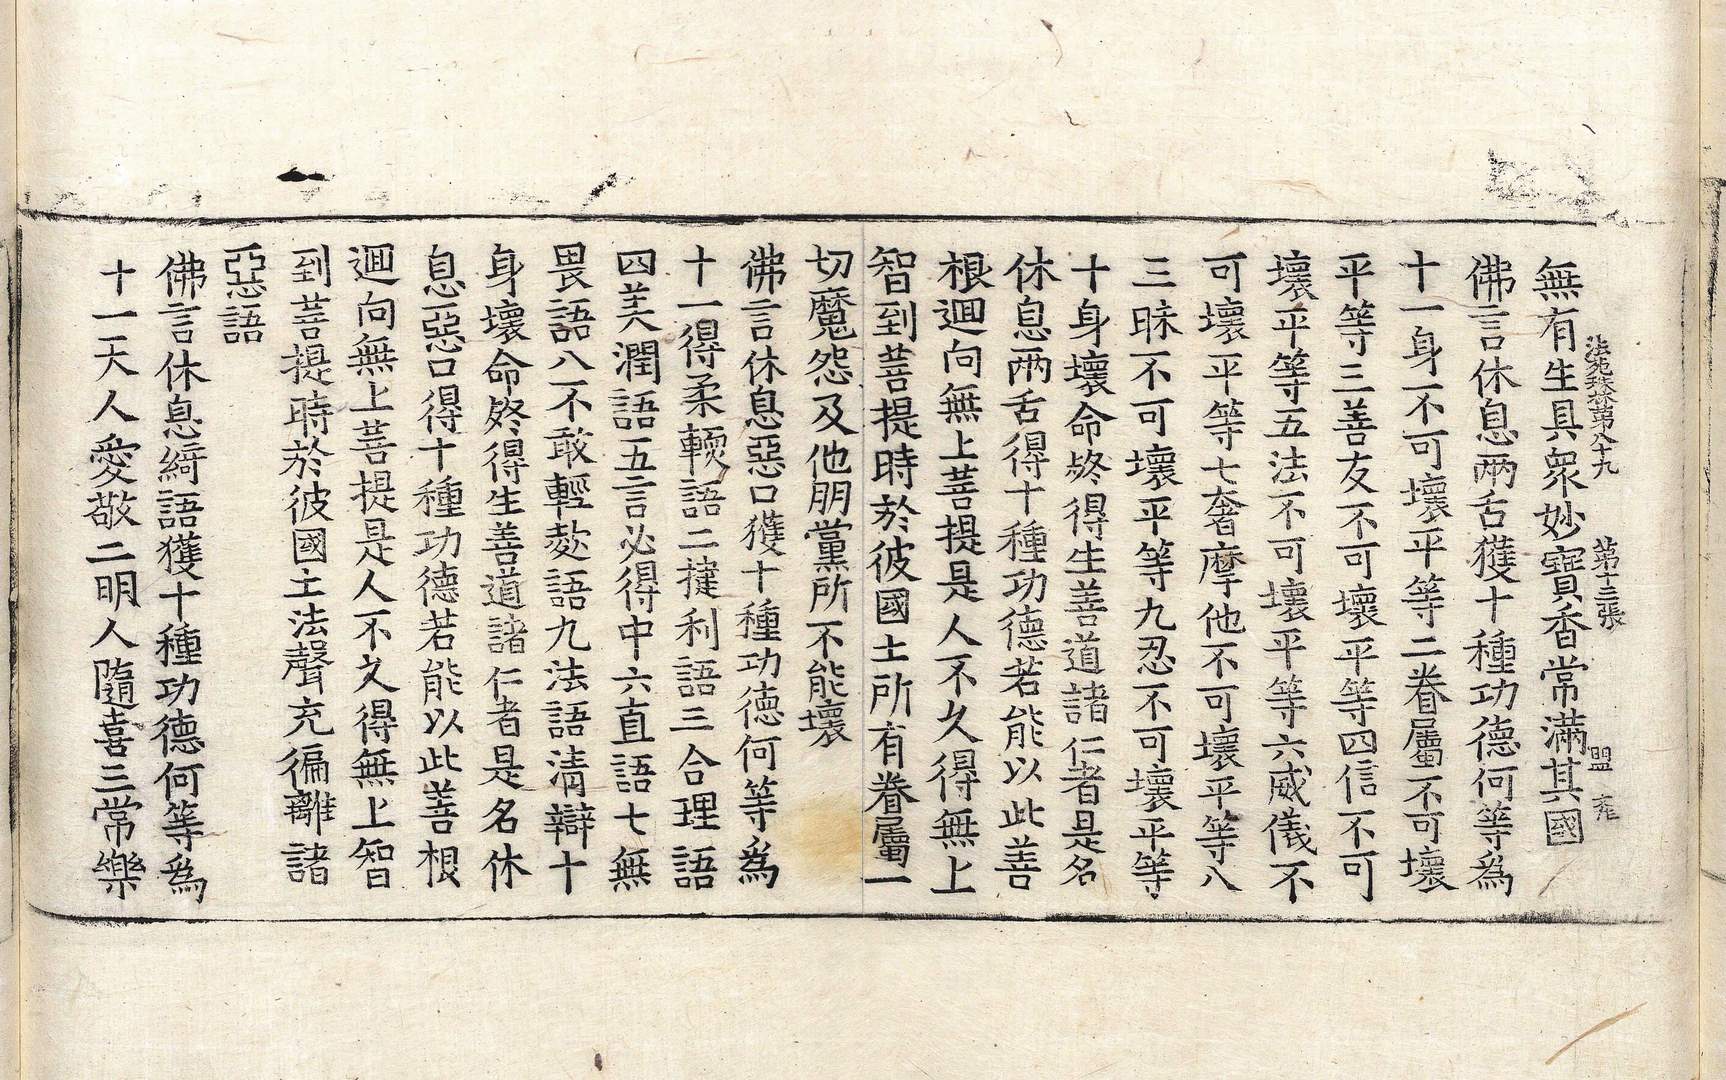 法苑珠林第八十九 第十三張 盟 雍
無有生具衆妙寶香常滿其國
佛言休息兩舌獲十種功德何等爲
十一身不可壞平等二眷屬不可壞
平等三善友不可壞平等四信不可
壞平等五法不可壞平等六威儀不
可壞平等七奢摩他不可壞平等八
三昧不可壞平等九忍不可壞平等
十身壞命終得生善道諸仁者是名
休息兩舌得十種功德若能以此善
根迴向無上菩提是人不久得無上
智到菩提時於彼國土所有眷屬一
切魔怨及他朋黨所不能壞
佛言休息惡口獲十種功德何等爲
十一得柔輭語二揵利語三合理語
四美潤語五言必得中六直語七無
畏語八不敢輕欺語九法語清辯十
身壞命終得生善道諸仁者是名休
息惡口得十種功德若能以此善根
迴向無上菩提是人不久得無上智
到菩提時於彼國土法聲充徧離諸
惡語
佛言休息綺語獲十種功德何等爲
十一天人愛敬二明人隨喜三常樂